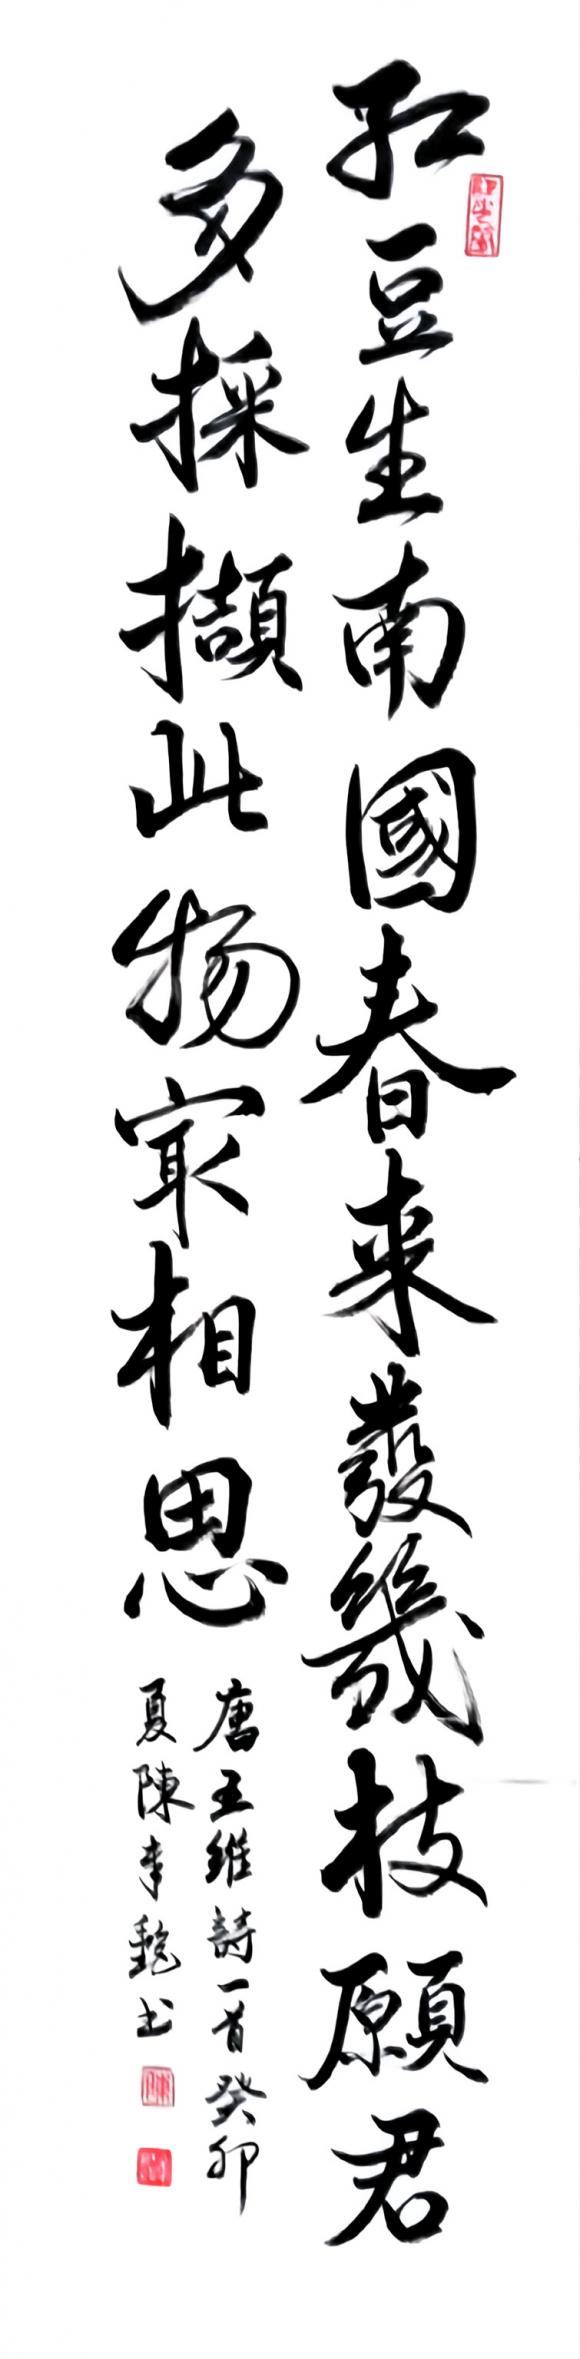 紅豆生南國春来發幾枝願君
多採擷此物最相思
唐王維詩一首癸卯
夏陳李艷书